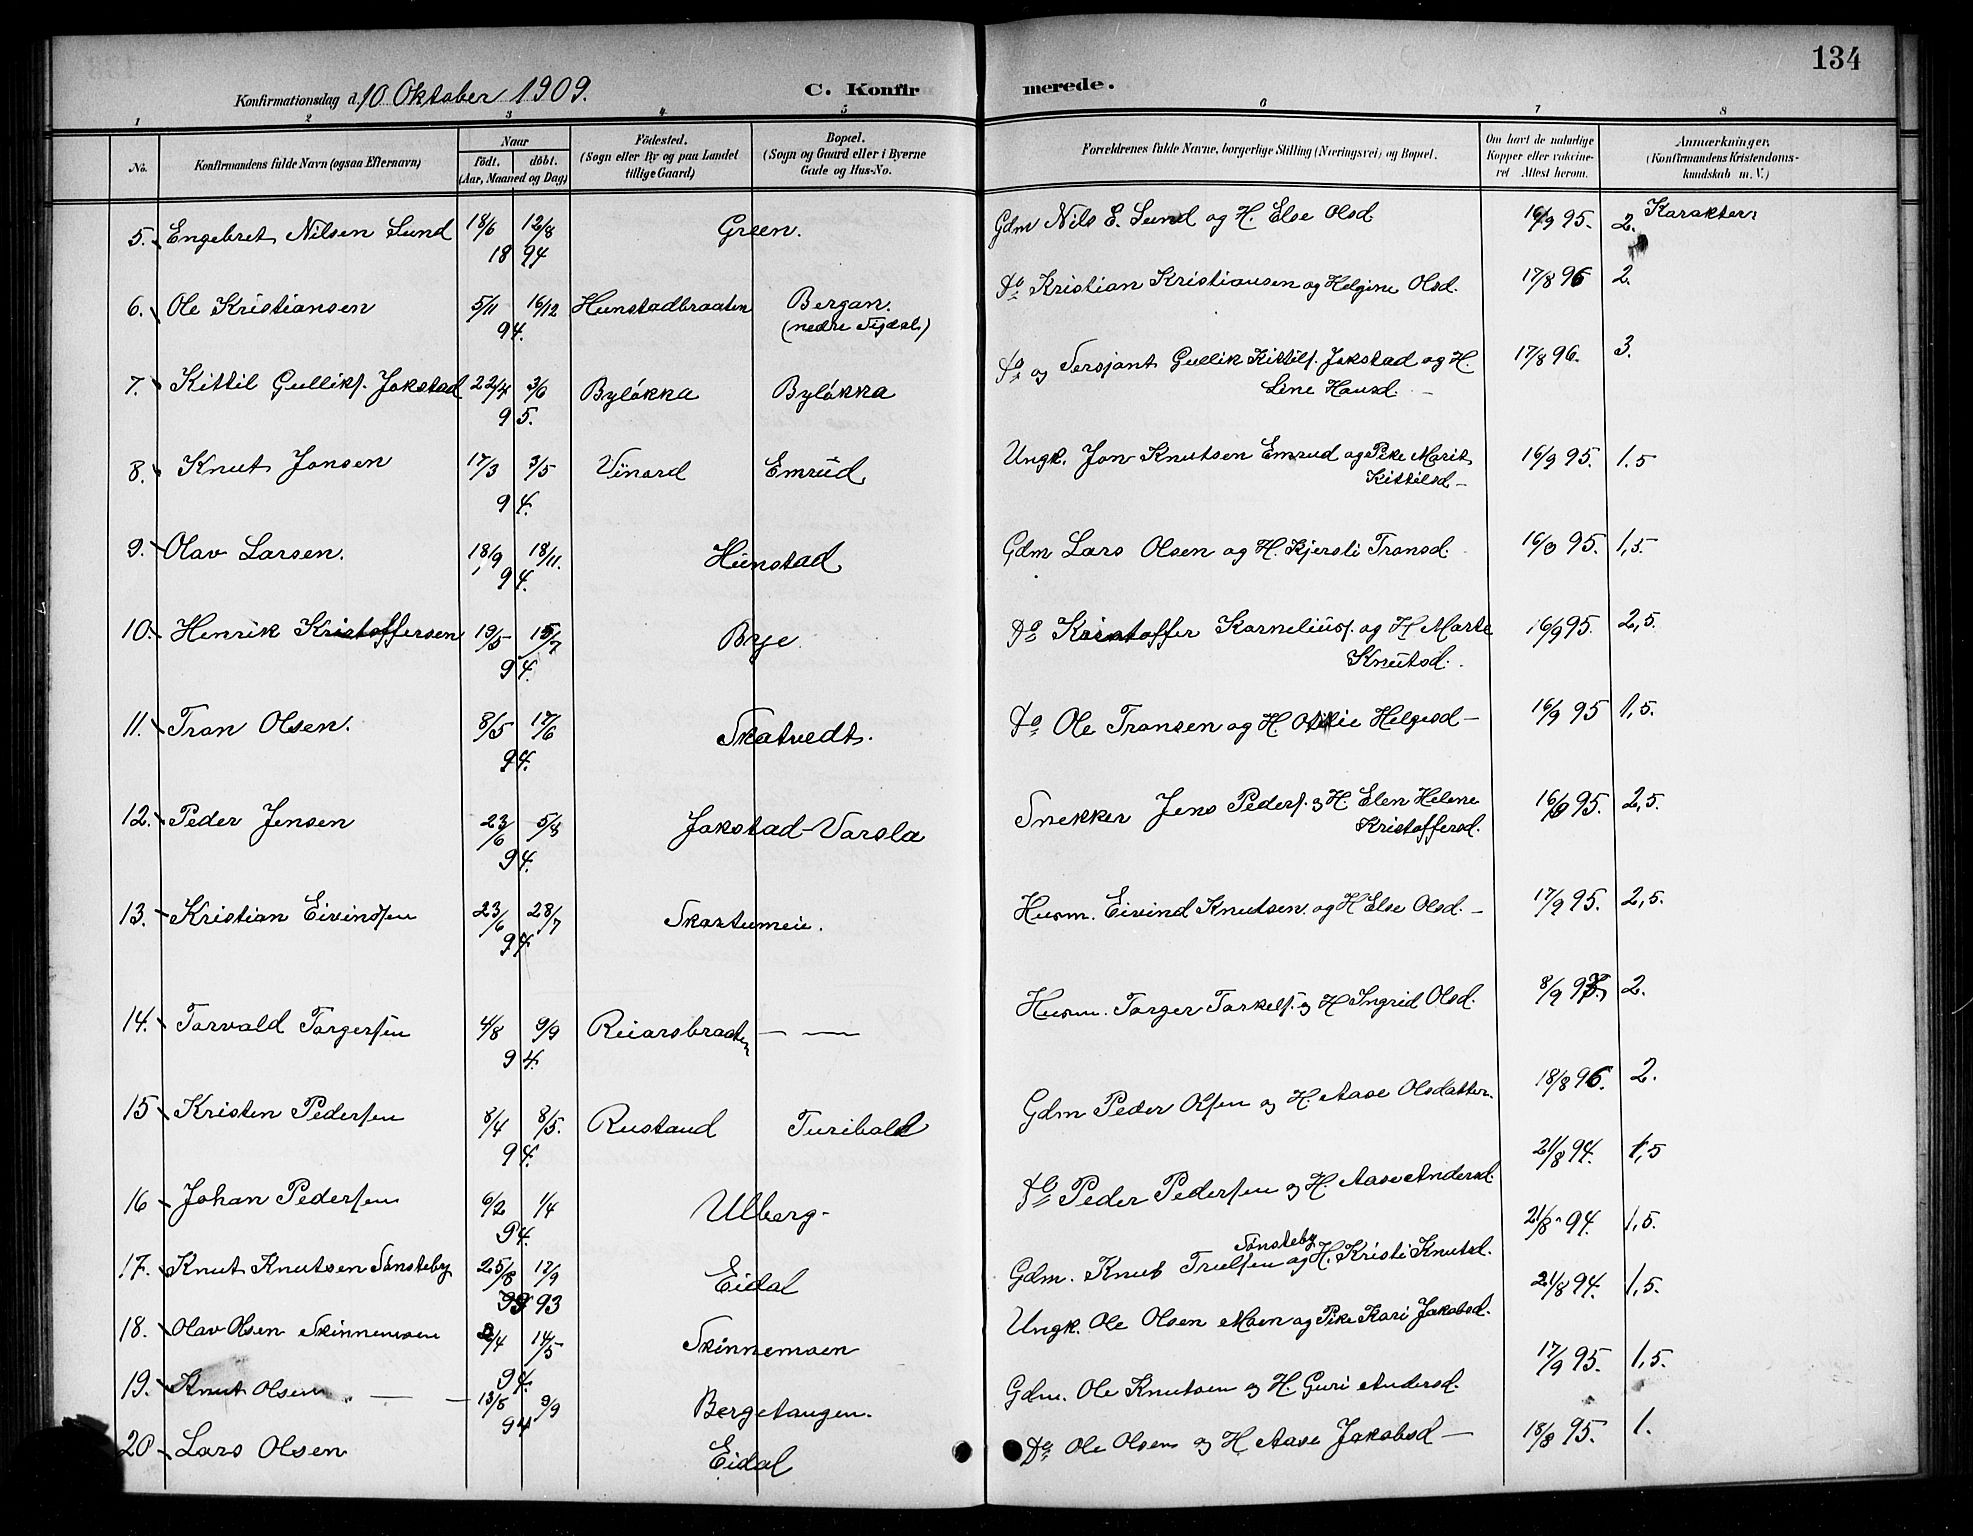 134
Konfirmationsdag d. 10 Oktober 1909. C. Konfirmerede.
1 2 3 4 5 6 7 8
No. Konfirmandens fulde Navn (ogsaa Efternavn) Naar født. døbt. (Aar, Maaned og Dag) Fødested. (Sogn eller By og paa Landet tillige Gaard) Bopæl. (Sogn og Gaard eller i Byerne Gade og Hus-No. Forældrenes fulde Navne, borgerlige Stilling (Næringsvei) og Bopæl. Om havt de naturlige Kopper eller vakcineret Attest herom. Anmærkninger. (Konfirmandens Kristendomskundskab m. V.)
Karakter:
5. Engebret Nilsen Lund 18/6 12/8 1894 Green. Gdm Nils E. Lund og H. Else Olsd. 16/9 95. 2.
6. Ole Kristiansen 5/11 16/12 94. Hunstadbraaten Bergan. (nedre Sigdal) Do Kristian Kristiansen og Helgine Olsd. 17/8 96 2.
7. Kittil Gulliks. Jokstad 22/4 3/6 95. Byløkka Byløkka Do og Sersjant Gullik Kittils. Jokstad og H. Line Hansd. 17/8 96. 3.
8. Knut Jonsen 17/3 3/5 94. Vinord Emrud Ungk. Jon Knutsen Emrud og Pike Marit Kittilsd - 16/9 95. 1.5
9. Olav Larsen. 18/9 18/11. 94. Hunstad Gdm Lars Olsen og H. Kjersti Tronsd. 16/9 95. 1,5.
10. Henrik Kristoffersen 19/5 15/7 94. Bye. Do Kristoffer Kornelius. og H Marte Knutsd. 16/9 95. 2,5.
11. Tron Olsen. 8/5 17/6 94. Skatvedt. Do Ole Tronsen og H. Helgesd - 16/9 95 1,5.
12. Peder Jensen 23/6 5/8 94. Jokstad-Varsla Snekker Jens Peders. og H. Elen Helene Kristoffersd. 16/9 95. 2,5.
13. Kristian Eivindsen 23/6 28/7 94. Skartumeie. Husm. Eivind Knutsen. og H Else Olsd. - 17/9 95. 2,5.
14. Torvald Torgersen 4/8 9/9 94. Reiarsbraaten — — Husm. Torger Torkels. og H Ingrid Olsd. 8/9 97. 2.
15 Kristen Pedersen 8/4 8/5. 94. Rustand Turibakk Gdm Peder Olsen og H. Aase Olsdatter. 18/8 96. 2.
16 Johan Pedersen 6/2 1/4 94. Ulberg- Do Peder Pedersen og H. Aase Andersd. 21/8 94. 1,5
17. Knut Knutsen Sønsteby 25/8 17/9 93 Eidal Gdm. Knut Trulsen Sønsteby og H. Kristi Knutsd. 21/8 94. 1,5.
18. Olav Olsen Skinnemoen 2/4 14/5 94. Skinnemoen Ungk. Ole Olsen Moen og Pike Kari Jakobsd. 21/8 94. 1,5.
19. Knut Olsen. — — 13/8 9/9 94 Bergetangen. Gdm. Ole Knutsen og H. Guri Andersd. 17/9 95. 1,5.
20 Lars Olsen Eidal Do Ole Olsen og H. Aase Jakobsd — 18/8 95. 1.